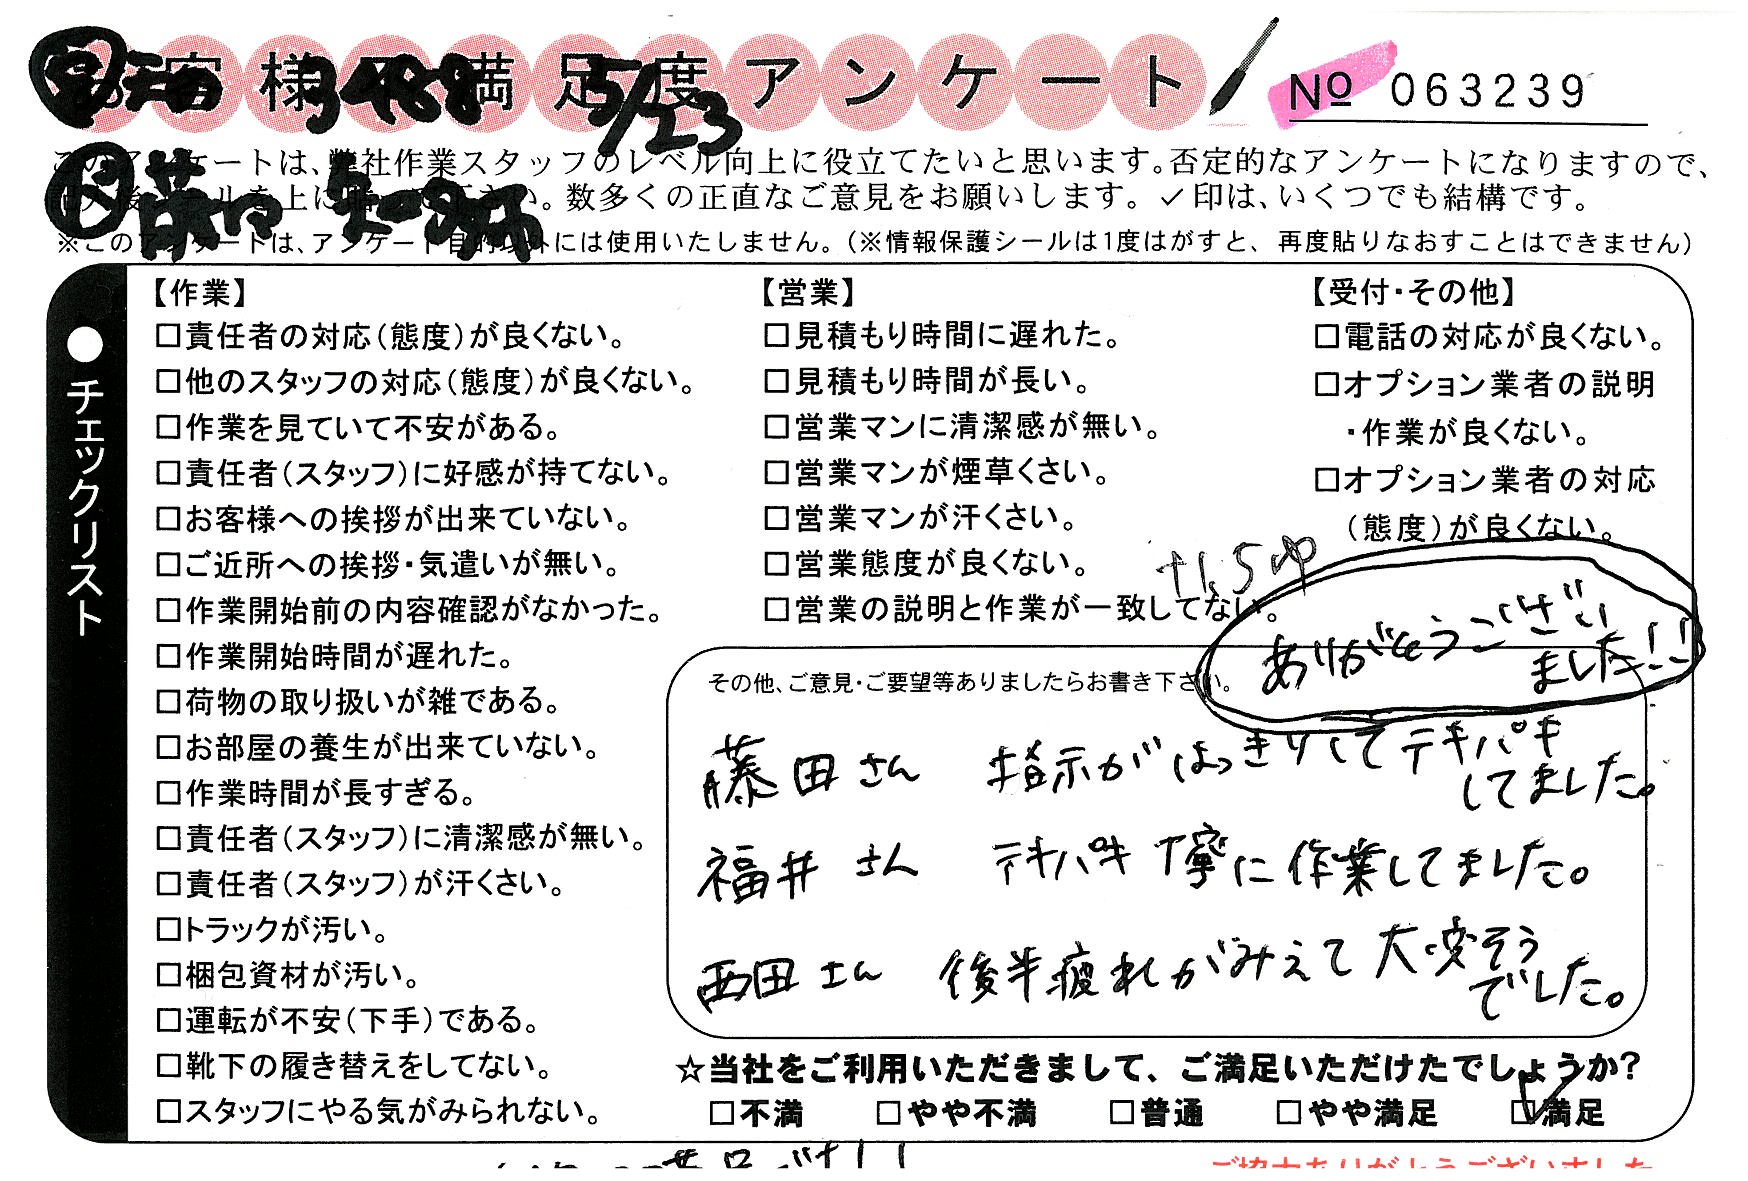 お客様不満足度アンケート
3488 5/23
No 063239
このアンケートは、弊社作業スタッフのレベル向上に役立てたいと思います。否定的なアンケートになりますので、
を上に 下さい。数多くの正直なご意見をお願いします。✓印は、いくつでも結構です。
※このアンケートは、アンケート目的以外には使用いたしません。(※情報保護シールは1度はがすと、再度貼りなおすことはできません)
●チェックリスト
【作業】
□責任者の対応(態度)が良くない。
□他のスタッフの対応(態度)が良くない。
□作業を見ていて不安がある。
□責任者(スタッフ)に好感が持てない。
□お客様への挨拶が出来ていない。
□ご近所への挨拶・気遣いが無い。
□作業開始前の内容確認がなかった。
□作業開始時間が遅れた。
□荷物の取り扱いが雑である。
□お部屋の養生が出来ていない。
□作業時間が長すぎる。
□責任者(スタッフ)に清潔感が無い。
□責任者(スタッフ)が汗くさい。
□トラックが汚い。
□梱包資材が汚い。
□運転が不安(下手)である。
□靴下の履き替えをしてない。
□スタッフにやる気がみられない。
【営業】
□見積もり時間に遅れた。
□見積もり時間が長い。
□営業マンに清潔感が無い。
□営業マンが煙草くさい。
□営業マンが汗くさい。
□営業態度が良くない。
□営業の説明と作業が一致してない。
【受付・その他】
□電話の対応が良くない。
□オプション業者の説明
・作業が良くない。
□オプション業者の対応
(態度)が良くない。
ありがとうござい
ました!!
その他、ご意見・ご要望等ありましたらお書き下さい。
藤田さん 指示がはっきりしてテキパキ
してました。
福井さん テキパキ丁寧に作業してました。
西田さん 後半疲れがみえて大変そう
でした。
☆当社をご利用いただきまして、ご満足いただけたでしょうか?
□不満 □やや不満 □普通 □やや満足 ☑満足
ご協力ありがとうございました